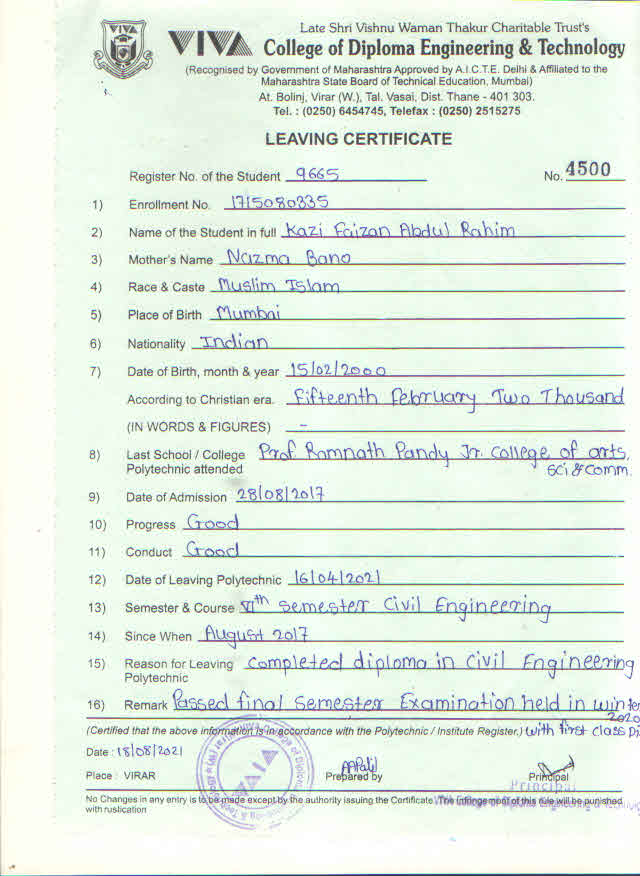 Late Shri Vishnu Waman Thakur Charitable Trust's
VIVA College of Diploma Engineering & Technology
(Recognised by Government of Maharashtra Approved by A.I.C.T.E. Delhi & Affiliated to the
Maharashtra State Board of Technical Education, Mumbai)
At. Bolinj, Virar (W.), Tal. Vasai, Dist. Thane - 401 303.
Tel. : (0250) 6454745, Telefax : (0250) 2515275
LEAVING CERTIFICATE
Register No. of the Student 9665 No. 4500
1) Enrollment No. 1715080335
2) Name of the Student in full Kazi Faizan Abdul Rahim
3) Mother's Name Nazma Bano
4) Race & Caste Muslim Islam
5) Place of Birth Mumbai
6) Nationality Indian
7) Date of Birth, month & year 15/02/2000
According to Christian era. Fifteenth February Two Thousand
(IN WORDS & FIGURES) -
8) Last School / College Prof. Ramnath Pandy Jr. College of arts,
Polytechnic attended sci & Comm.
9) Date of Admission 28/08/2017
10) Progress Good
11) Conduct Good
12) Date of Leaving Polytechnic 16/04/2021
13) Semester & Course VIth semester Civil Engineering
14) Since When August 2017
15) Reason for Leaving Completed diploma in Civil Engineering
Polytechnic
16) Remark Passed final semester Examination held in winter
2020
(Certified that the above information is in accordance with the Polytechnic / Institute Register.) with first class Di
Date : 18/08/2021
Place : VIRAR Prepared by Principal
Principal
No Changes in any entry is to be made except by the authority issuing the Certificate. The infringement of this rule will be punished
with rustication